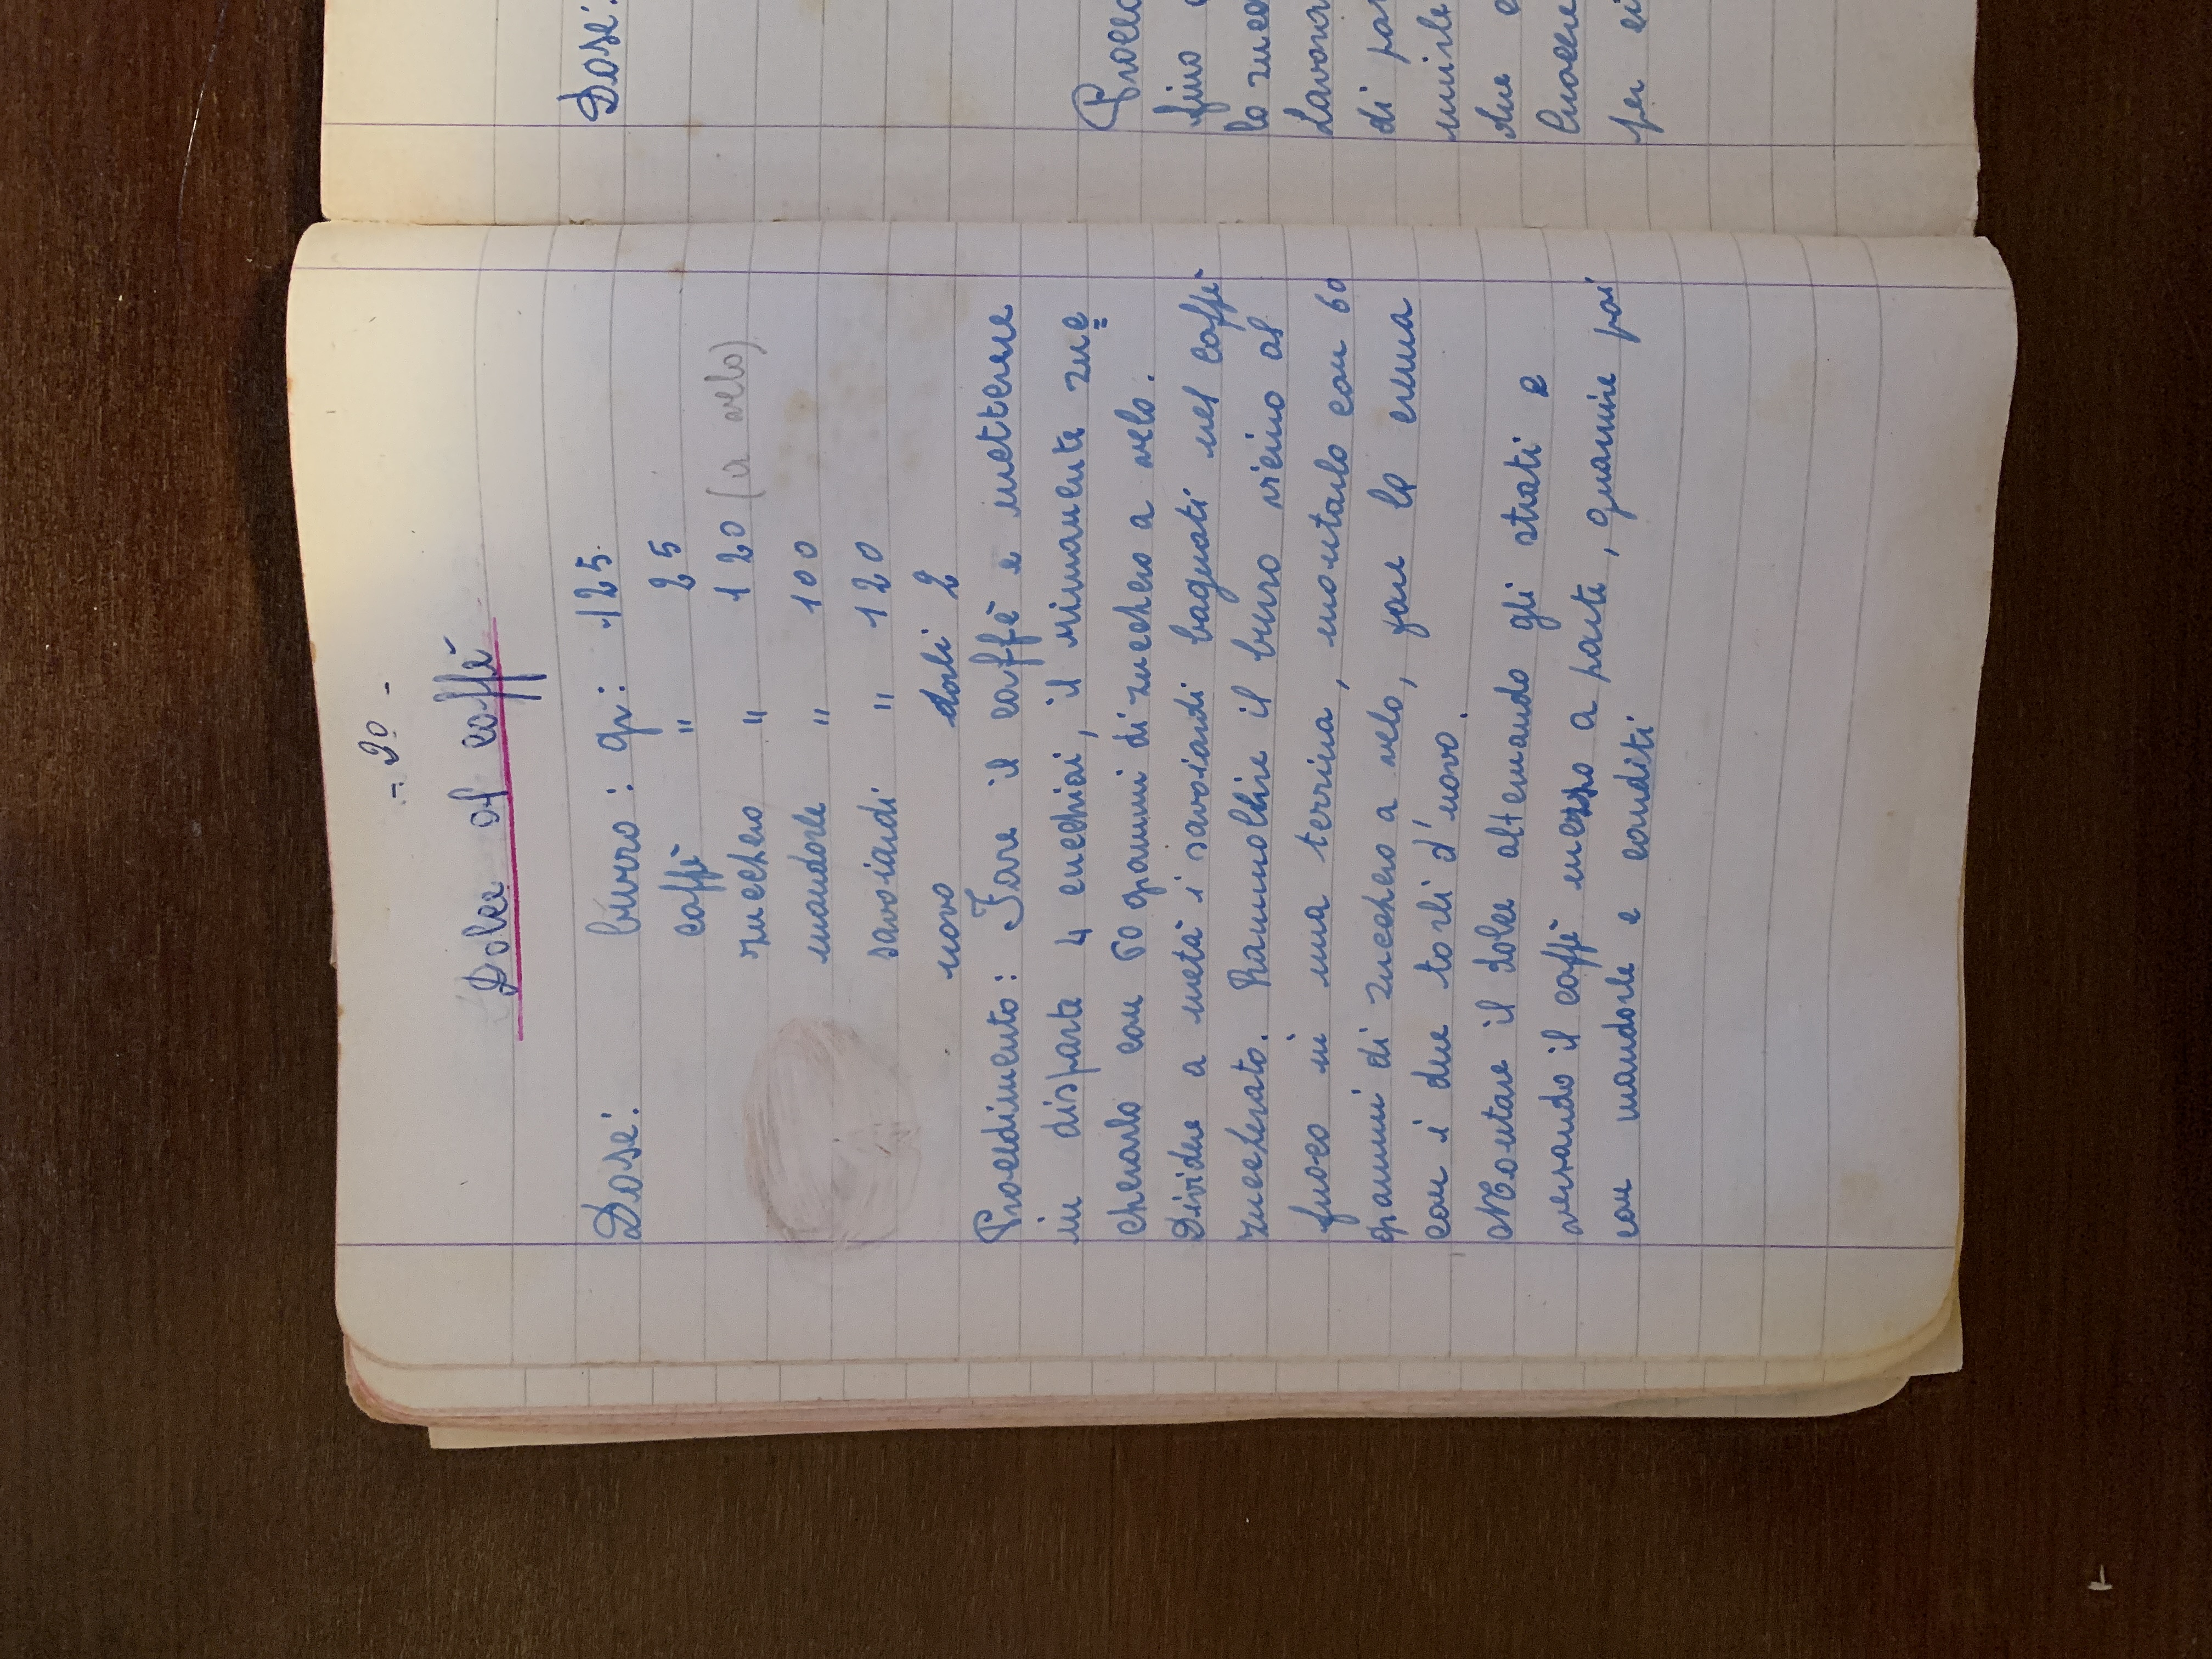 - 20 -
Dolce al caffè
Dose: burro : gr: 125.
caffè " 25
zucchero " 120 (a velo)
mandorle " 100
savoiardi " 120
uovo dorli 2
Procedimento: Fare il caffè e metterne
in disparte 4 cucchiai, il rimanente zuc
cherarlo con 60 grammi di zucchero a velo.
Dividere a metà i savoiardi bagnati nel caffè
zuccherato. Rammollire il burro vicino al
fuoco in una terrina, montarlo con 60
grammi di zucchero a velo, fare la crema
con i due torli d'uovo.
Montare il dolce alternando gli strati e
versando il caffè mezzo a parte, guarnire poi
con mandorle e canditi
Dose:
fino
lo
di
due
per